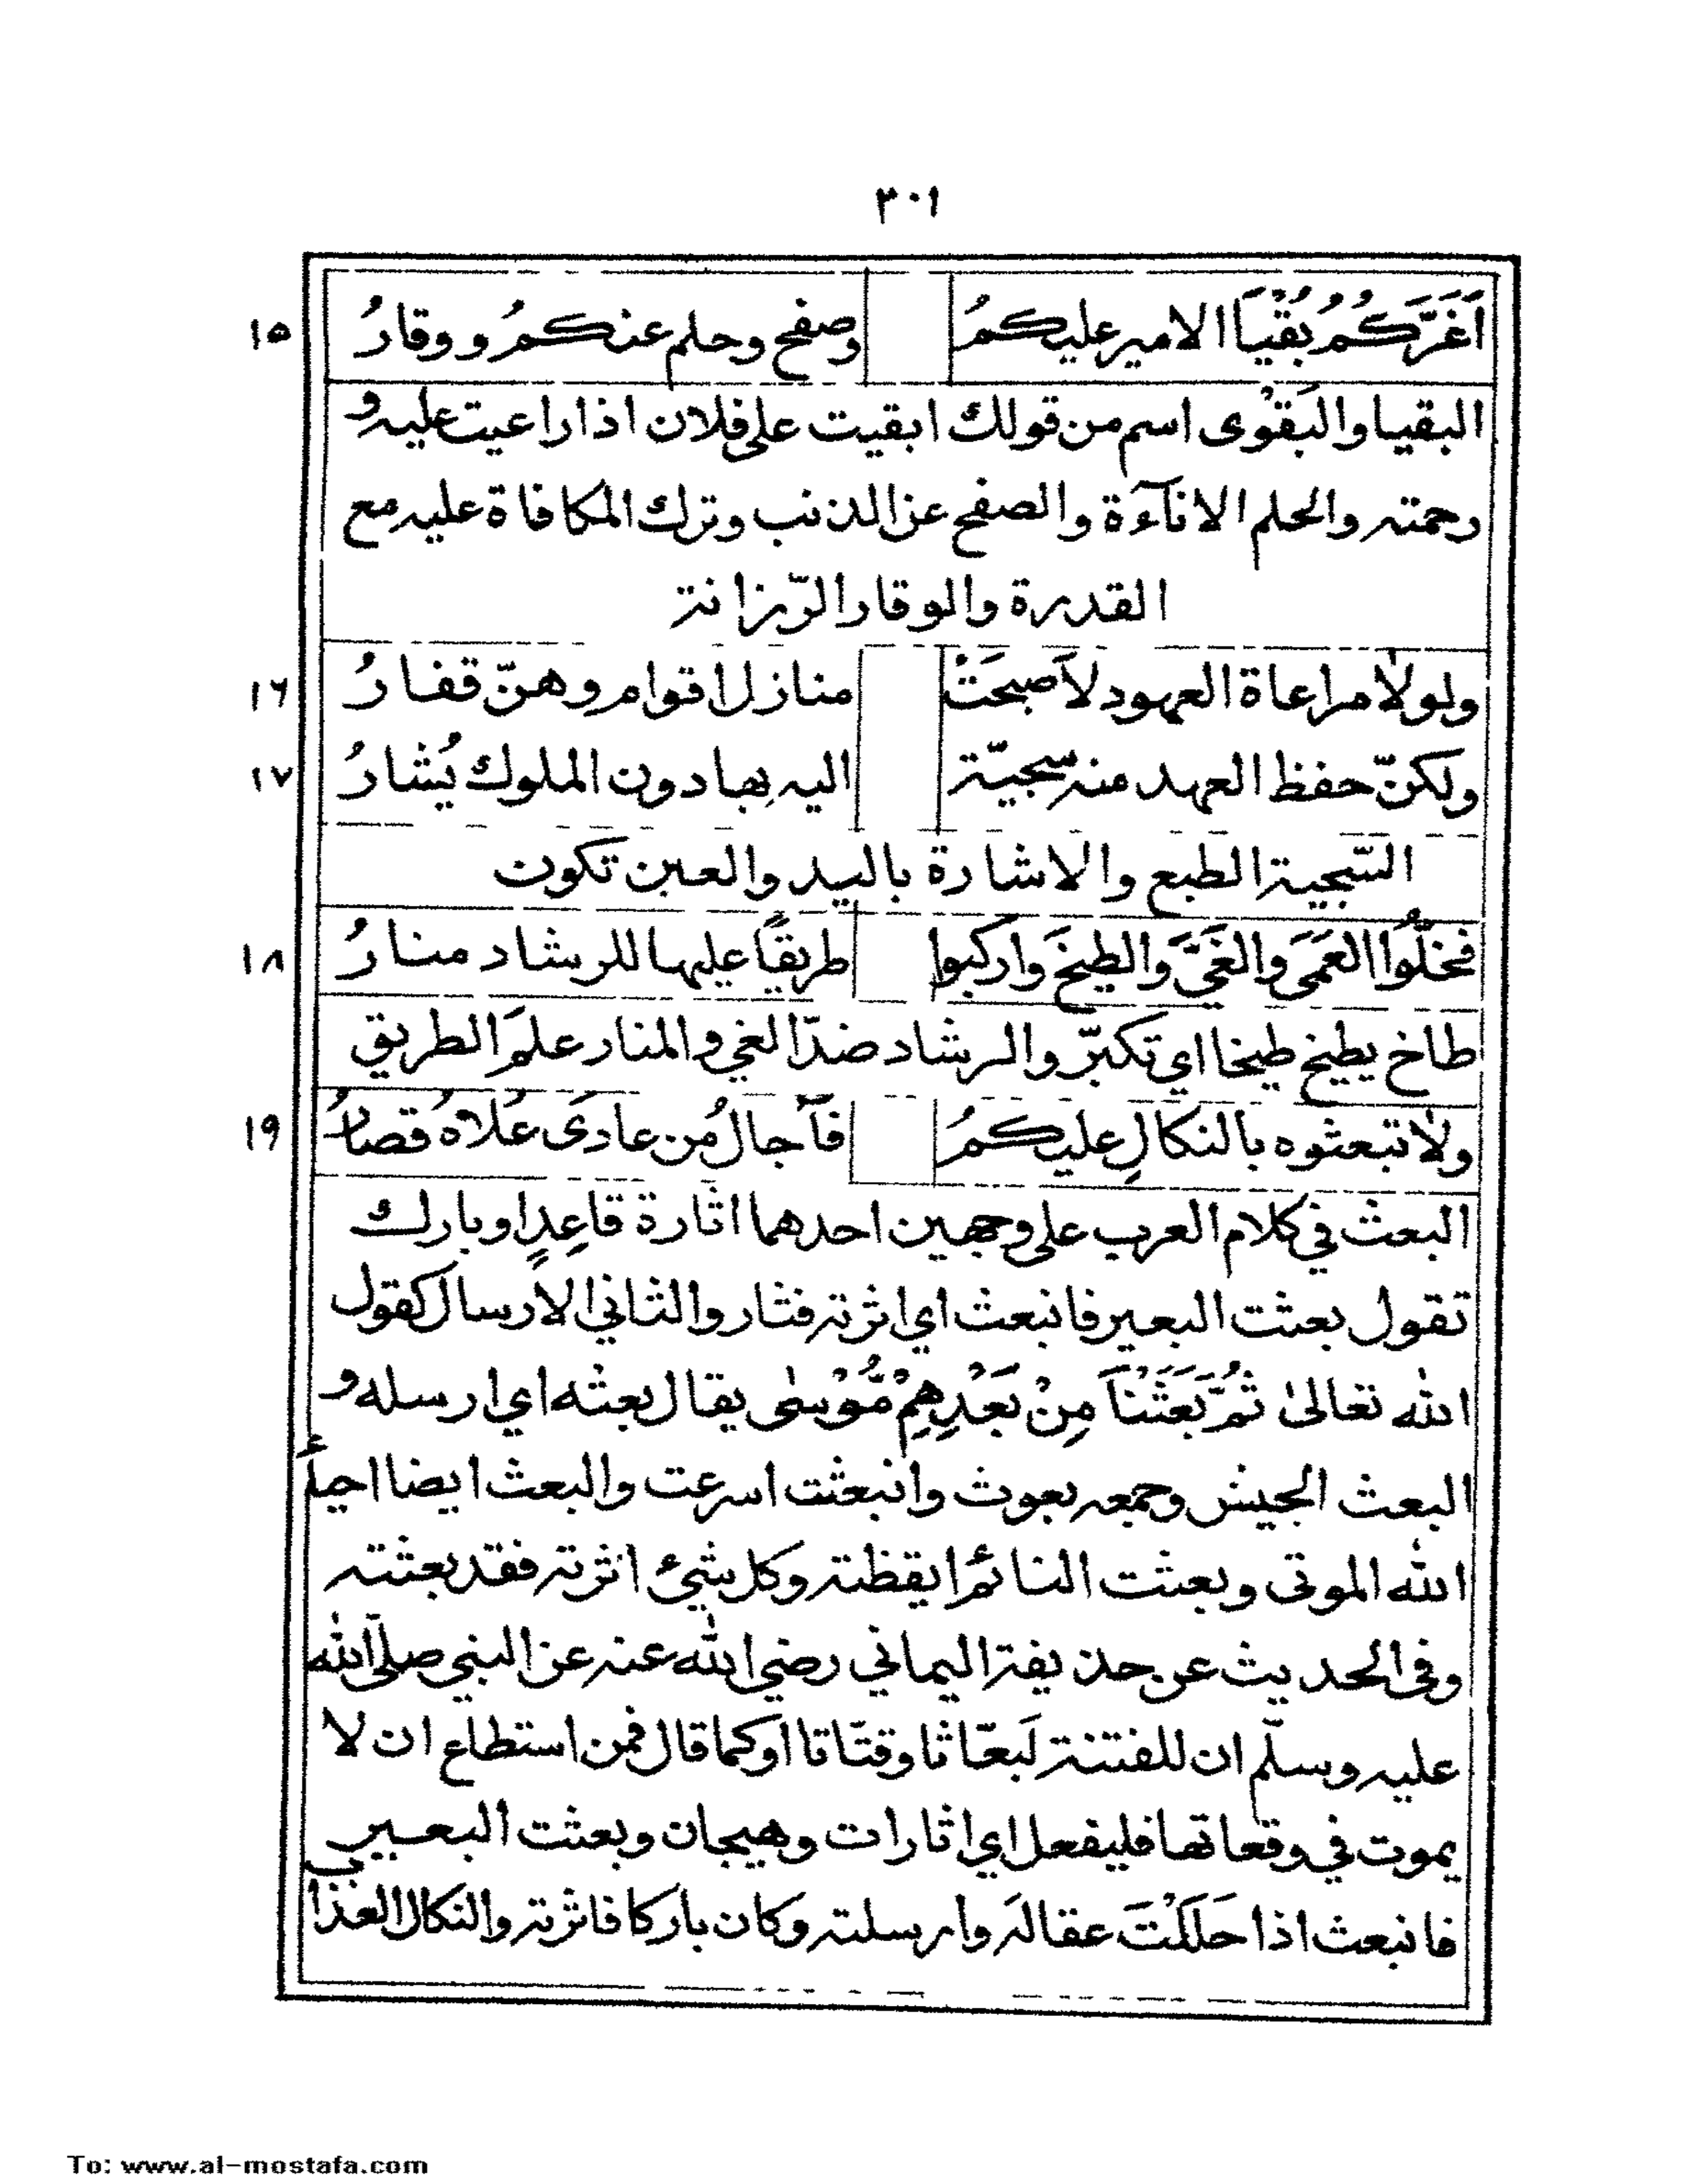 ٣٠١
أَغَرَّكُمُ بُقْيَا الامير عليكمُ وصفح وحلم عنكمُ ووقارُ ١٥
البقيا والبَقوْى اسم من قولك ابقيت على فلان اذا راعيت عليه و
رحمته والحلم الاناءة والصفح عن الذنب وترك المكافاة عليه مع
القدرة والوقار الرّزانة
ولولا مراعاة العهود لأصبحَتْ منازل اقوام وهنّ قفارُ ١٦
ولكنّ حفظ العهد منه سجيّة اليه بها دون الملوك يُشارُ ١٧
السّجية الطبع والاشارة باليد والعين تكون
فخلُّوا العَمَى والغَيَّ والطيخَ واركبوا طريقًا عليها للرشاد منارُ ١٨
طاخ يطيخ طيخا اي تكبّر والرشاد ضدّ الغي والمنار علمَ الطريق
ولا تبعثوه بالنكالِ عليكمُ فآجالُ من عادَى عُلاهُ قصارُ ١٩
البعث في كلام العرب على وجهين احدهما اثارة قاعِدٍ او بارك
تقول بعثت البعير فانبعث اي اثرته فثار والثاني الأرسال كقول
الله تعالى ثُمَّ بَعَثْنَا مِنْ بَعْدِهِمْ مُّوْسٰى يقال بعثه اي ارسله و
البعث الجيش وجمعه بعوث وانبعثت اسرعت والبعث ايضا احياءُ
الله الموتى وبعثت النائم ايقظته وكل شيئ اثرته فقد بعثته
وفى الحديث عن حذيفة اليماني رضي الله عنه عن النبي صلّى الله
عليه وسلّم ان للفتنة لَبعّاثا وقتّاتا او كما قال فمن استطاع ان لا
يموت في وقعاتها فليفعل اي اثارات وهيجان وبعثت البعير
فانبعث اذا حَلَلْتَ عقالَه وارسلته وكان باركا فاثرته والنكال العذاب
To: www.al-mostafa.com